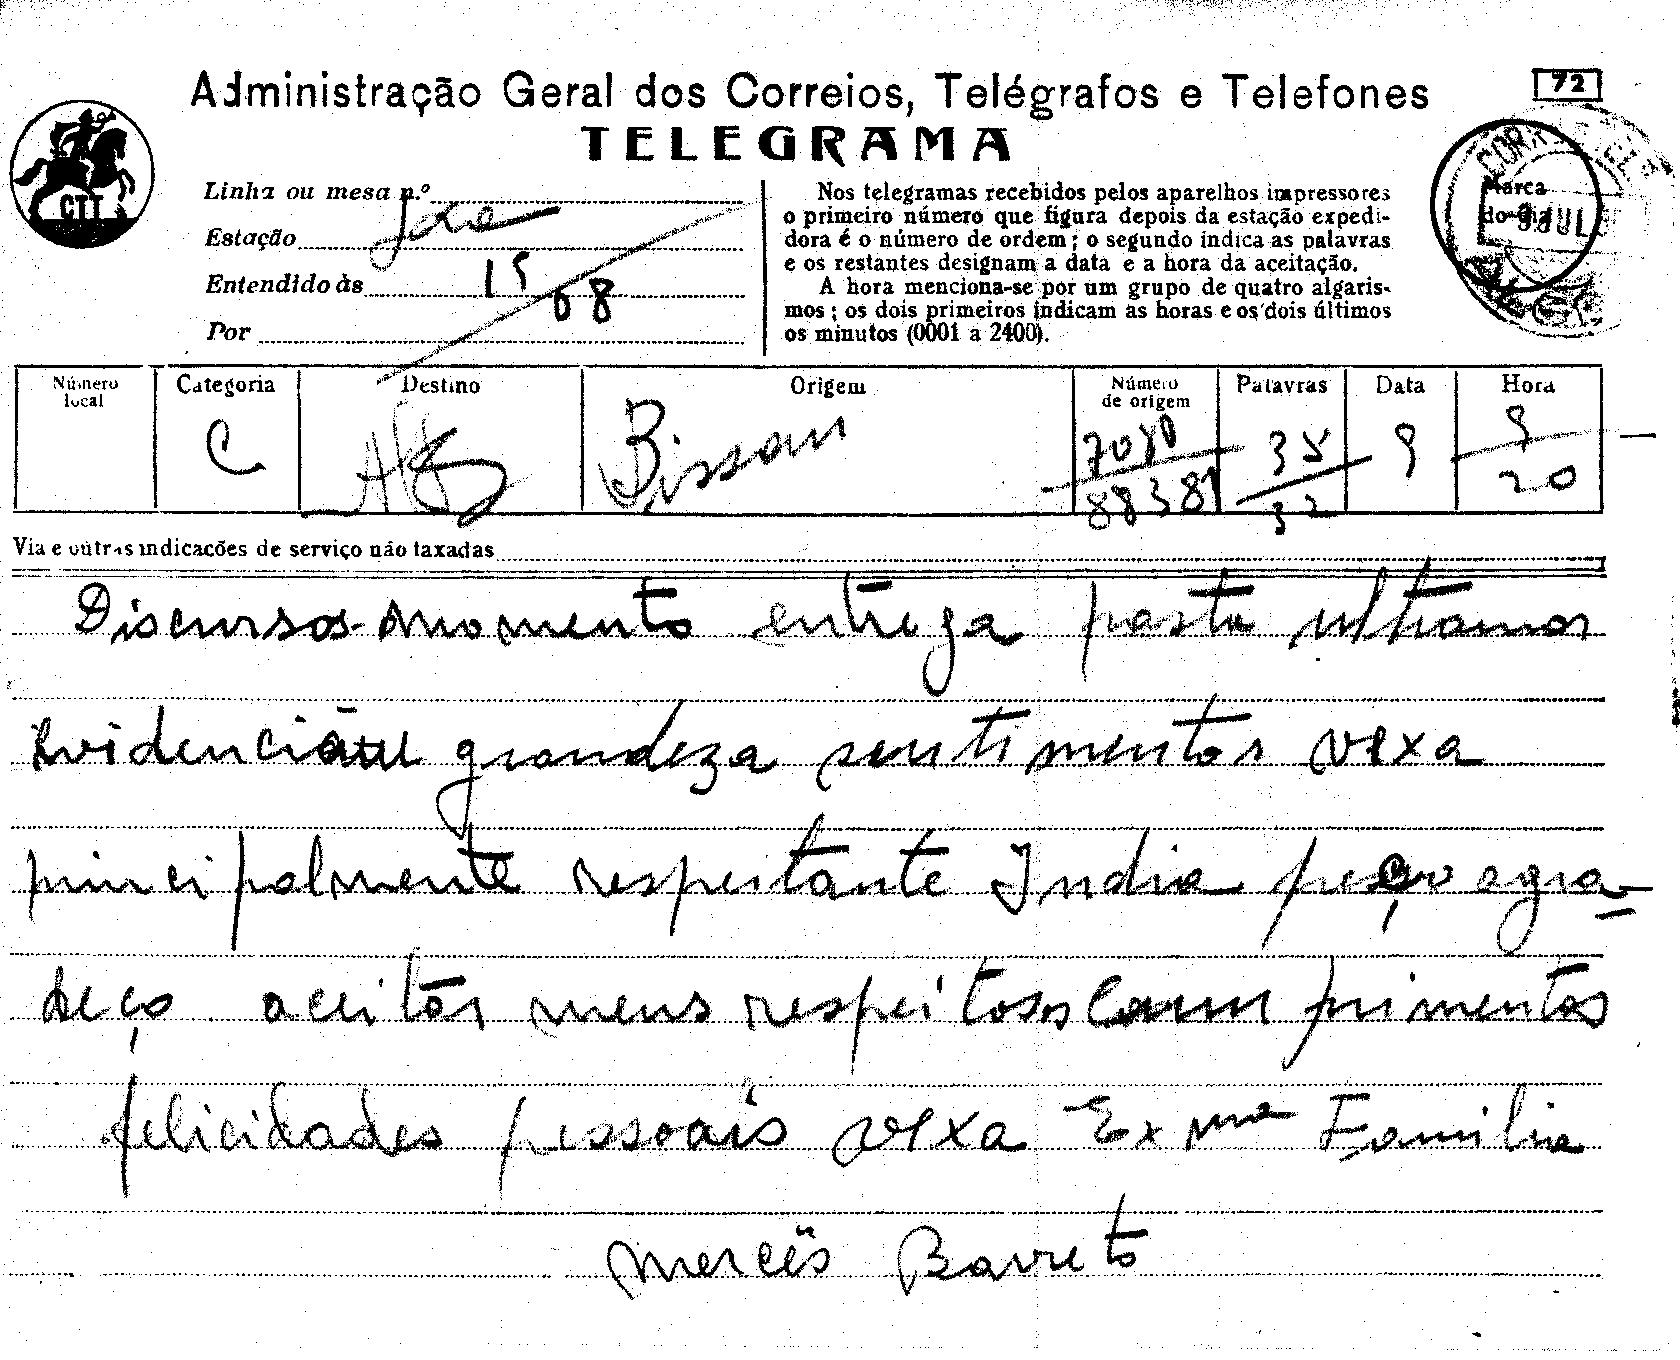 72
Administração Geral dos Correios, Telégrafos e Telefones
TELEGRAMA
CTT
Linha ou mesa n.º
Estação
Entendido às 15/08
Por
Nos telegramas recebidos pelos aparelhos impressores
o primeiro número que figura depois da estação expedi-
dora é o número de ordem; o segundo indica as palavras
e os restantes designam a data e a hora da aceitação.
A hora menciona-se por um grupo de quatro algaris-
mos; os dois primeiros indicam as horas e os dois últimos
os minutos (0001 a 2400).
Marca
do dia
9 JUL
Número local
Categoria
Destino
Origem
Número de origem
Palavras
Data
Hora
C
Bissau
7080/88381
35/32
9
9/20
Via e outras indicacões de serviço não taxadas
Discursos momento entrega pasta ultramar
evidenciam grandeza sentimentos vexa
principalmente respeitante India peço agra-
deço aceitar meus respeitosos cumprimentos
felicidades pessoais vexa Exma Familia
Mercês Barreto